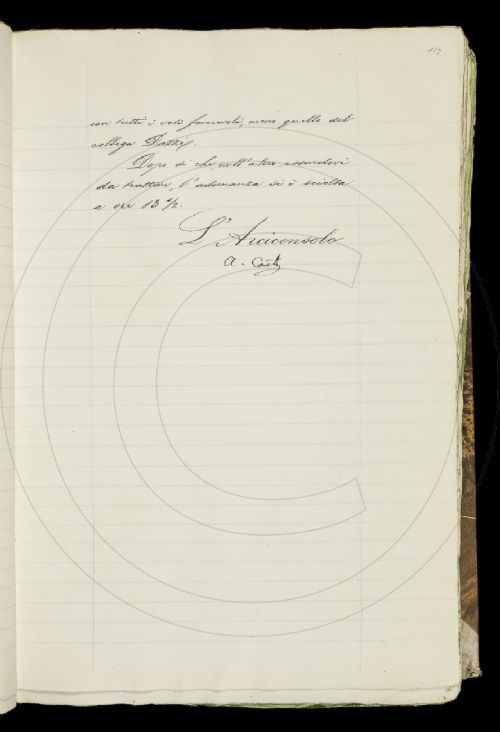 con tutti i voti favorevoli, meno quello del
collega
Dopo di che, null'altro essendovi
da trattare, l'adunanza si è sciolta
a ore 13 1/2.
L'Arciconsolo